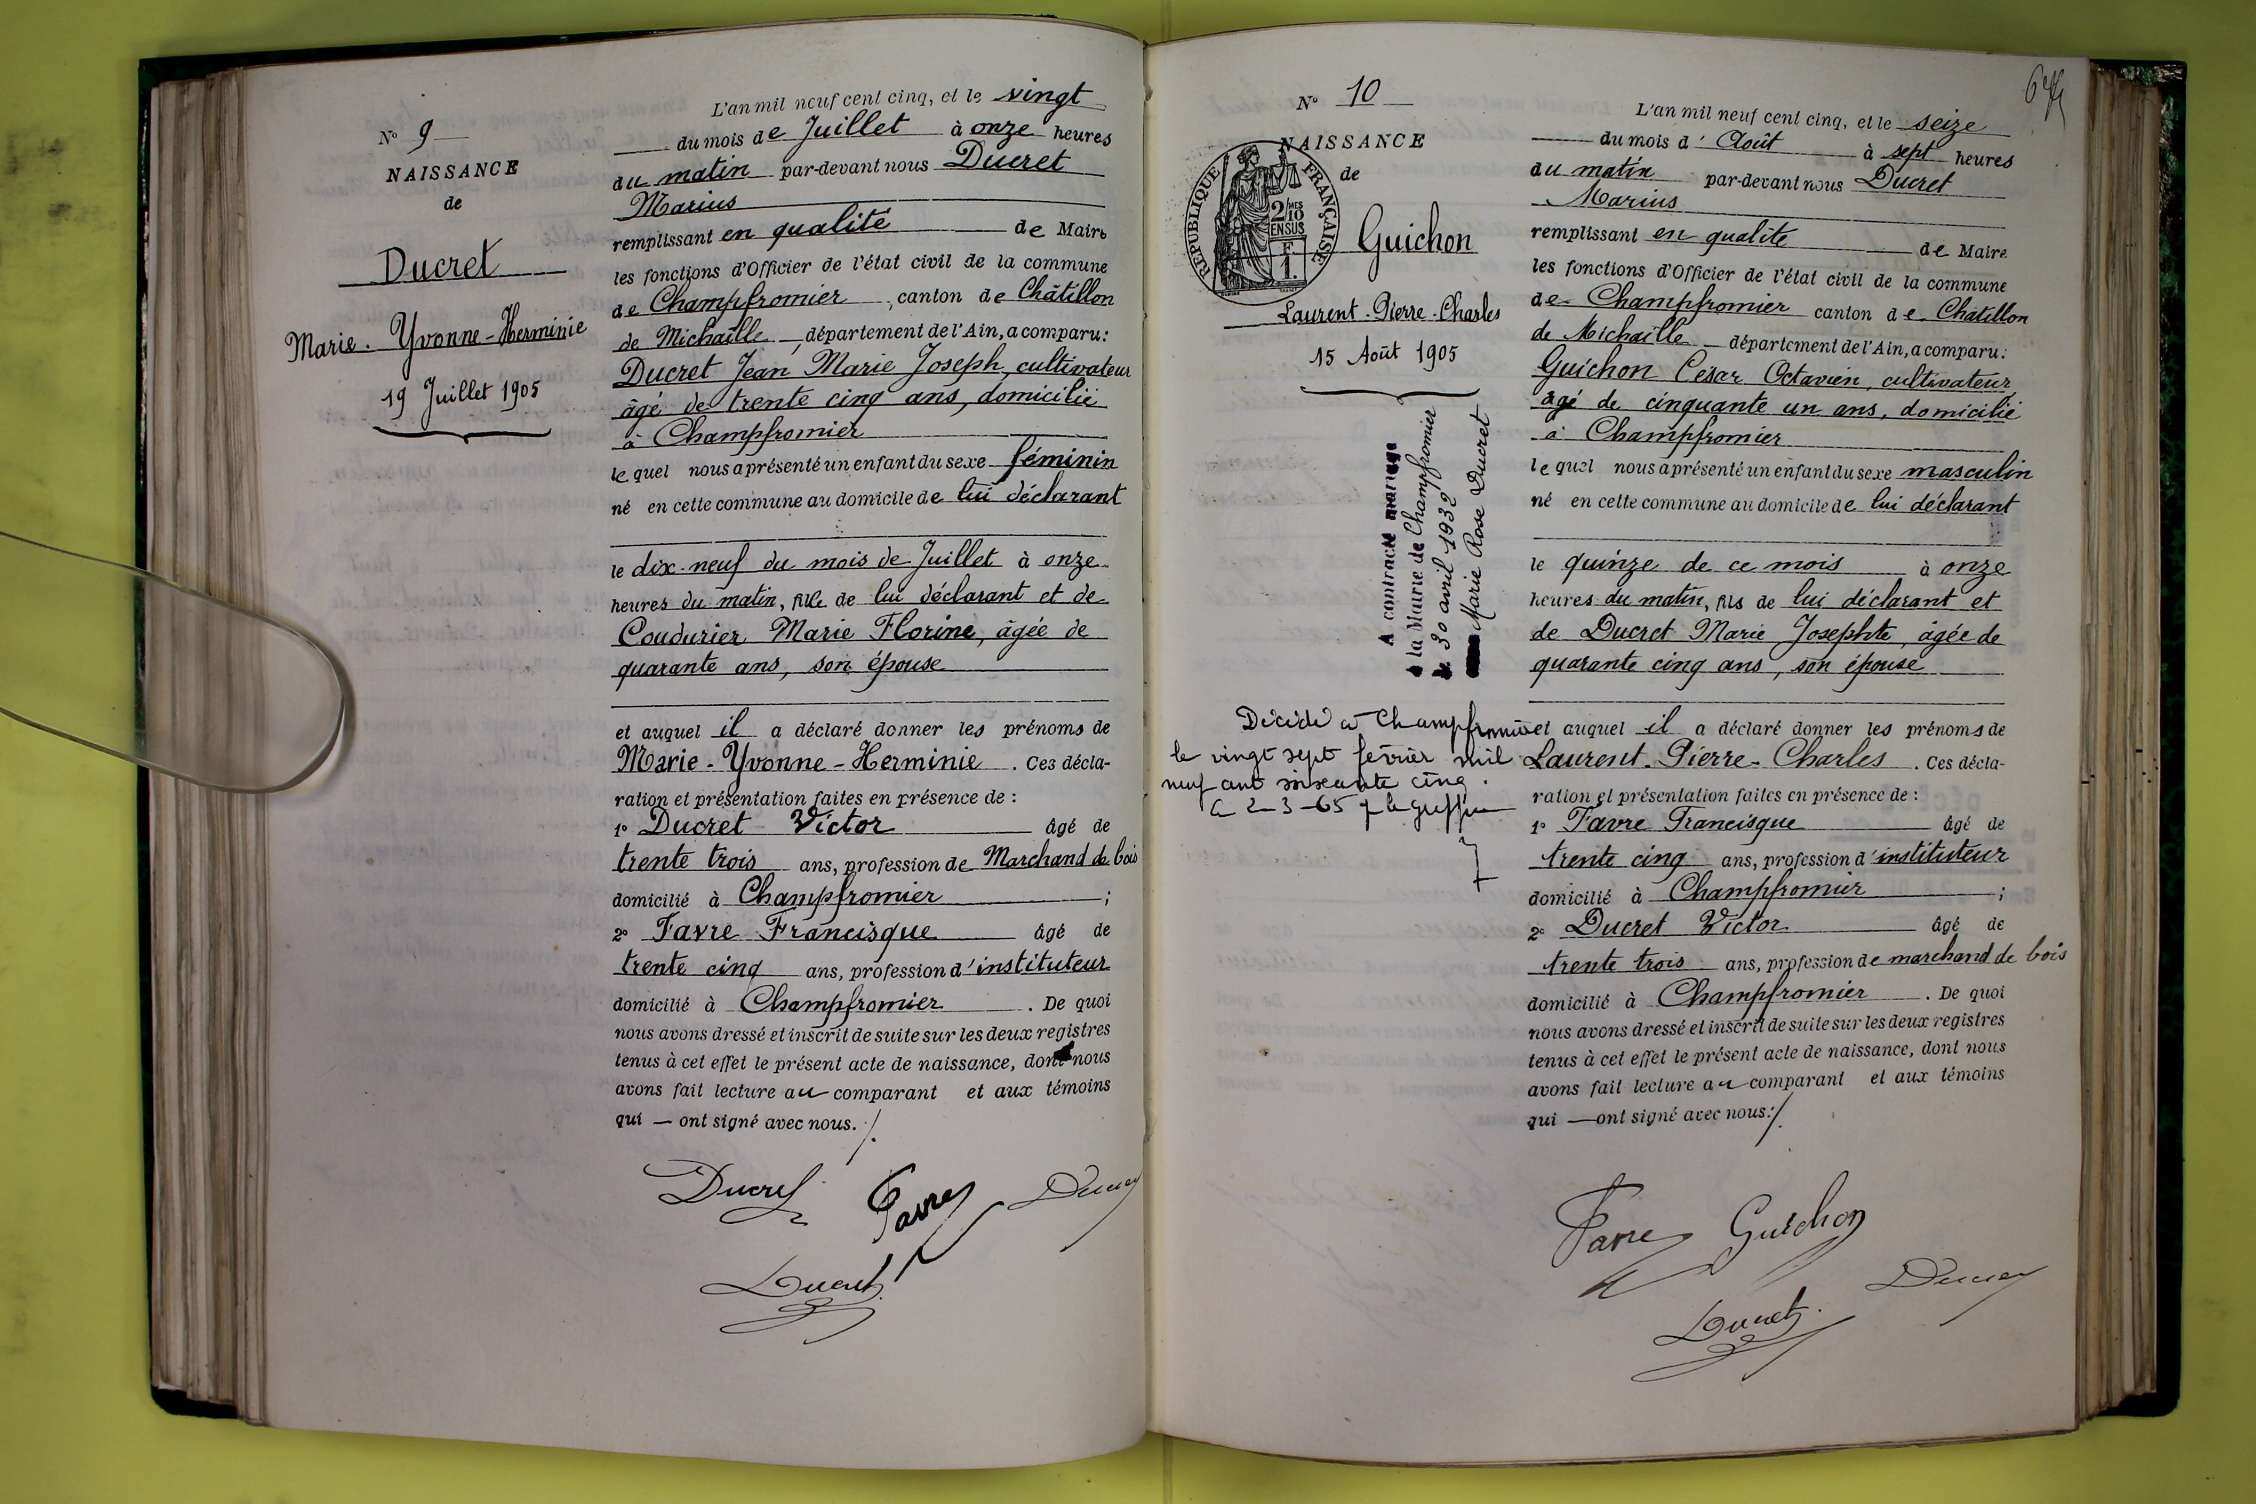 N° 9
NAISSANCE
de
Ducret
Marie-Yvonne-Herminie
19 Juillet 1905
L'an mil neuf cent cinq, et le vingt
du mois de Juillet à onze heures
du matin par-devant nous Ducret
Marius
remplissant en qualité de Maire
les fonctions d'Officier de l'état civil de la commune
de Champfromier, canton de Châtillon
de Michaille, département de l'Ain, a comparu:
Ducret Jean Marie Joseph, cultivateur
âgé de trente cinq ans, domicilié
à Champfromier
lequel nous a présenté un enfant du sexe féminin
né en cette commune au domicile de lui déclarant
le dix-neuf du mois de Juillet à onze
heures du matin, fille de lui déclarant et de
Coudurier Marie Florine, âgée de
quarante ans, son épouse
et auquel il a déclaré donner les prénoms de
Marie-Yvonne-Herminie. Ces décla-
ration et présentation faites en présence de:
1° Ducret Victor âgé de
trente trois ans, profession de Marchand de bois
domicilié à Champfromier;
2° Favre Francisque âgé de
trente cinq ans, profession d'instituteur
domicilié à Champfromier. De quoi
nous avons dressé et inscrit de suite sur les deux registres
tenus à cet effet le présent acte de naissance, dont nous
avons fait lecture au comparant et aux témoins
qui — ont signé avec nous./.
Ducret Favre Ducret
Ducret
N° 10
NAISSANCE
de
RÉPUBLIQUE FRANÇAISE
2/10 MES
EN SUS
F
1.
Guichon
Laurent-Pierre-Charles
15 Août 1905
A contracté mariage
à la Mairie de Champfromier
le 30 avril 1932
Marie Rose Ducret
Décédé à Champfromier
le vingt sept février mil
neuf cent soixante cinq.
Le 2-3-65
L'an mil neuf cent cinq, et le seize
du mois d'Août à sept heures
du matin par-devant nous Ducret
Marius
remplissant en qualité de Maire
les fonctions d'Officier de l'état civil de la commune
de Champfromier canton de Chatillon
de Michaille département de l'Ain, a comparu:
Guichon César Octavien, cultivateur
âgé de cinquante un ans, domicilié
à Champfromier
lequel nous a présenté un enfant du sexe masculin
né en cette commune au domicile de lui déclarant
le quinze de ce mois à onze
heures du matin, fils de lui déclarant et
de Ducret Marie Josephte, âgée de
quarante cinq ans, son épouse
et auquel il a déclaré donner les prénoms de
Laurent-Pierre-Charles. Ces décla-
ration et présentation faites en présence de:
1° Favre Francisque âgé de
trente cinq ans, profession d'instituteur
domicilié à Champfromier;
2° Ducret Victor âgé de
trente trois ans, profession de marchand de bois
domicilié à Champfromier. De quoi
nous avons dressé et inscrit de suite sur les deux registres
tenus à cet effet le présent acte de naissance, dont nous
avons fait lecture au comparant et aux témoins
qui — ont signé avec nous:/.
Favre Guichon
Ducret
Ducret